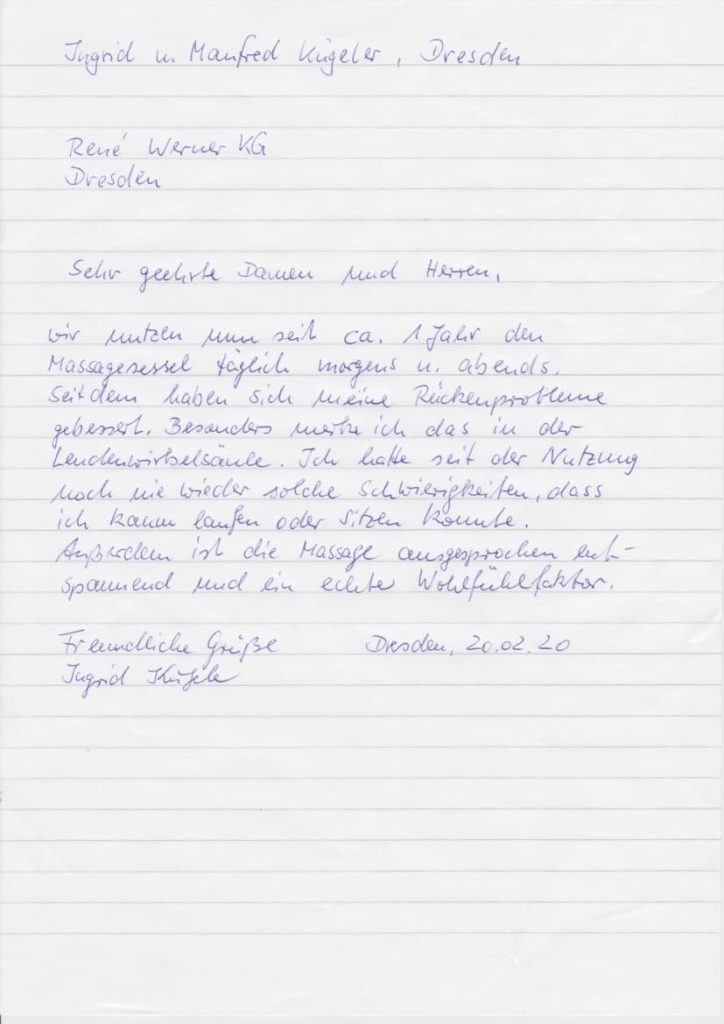 Ingrid u. Manfred Kügeler, Dresden
René Werner KG
Dresden
Sehr geehrte Damen und Herren,
wir nutzen nun seit ca. 1 Jahr den
Massagesessel täglich morgens u. abends.
Seitdem haben sich meine Rückenprobleme
gebessert. Besonders merke ich das in der
Lendenwirbelsäule. Ich hatte seit der Nutzung
noch nie wieder solche Schwierigkeiten, dass
ich kaum laufen oder sitzen konnte.
Außerdem ist die Massage ausgesprochen ent-
spannend und ein echter Wohlfühlfaktor.
Freundliche Grüße Dresden, 20.02.20
Ingrid Kügeler